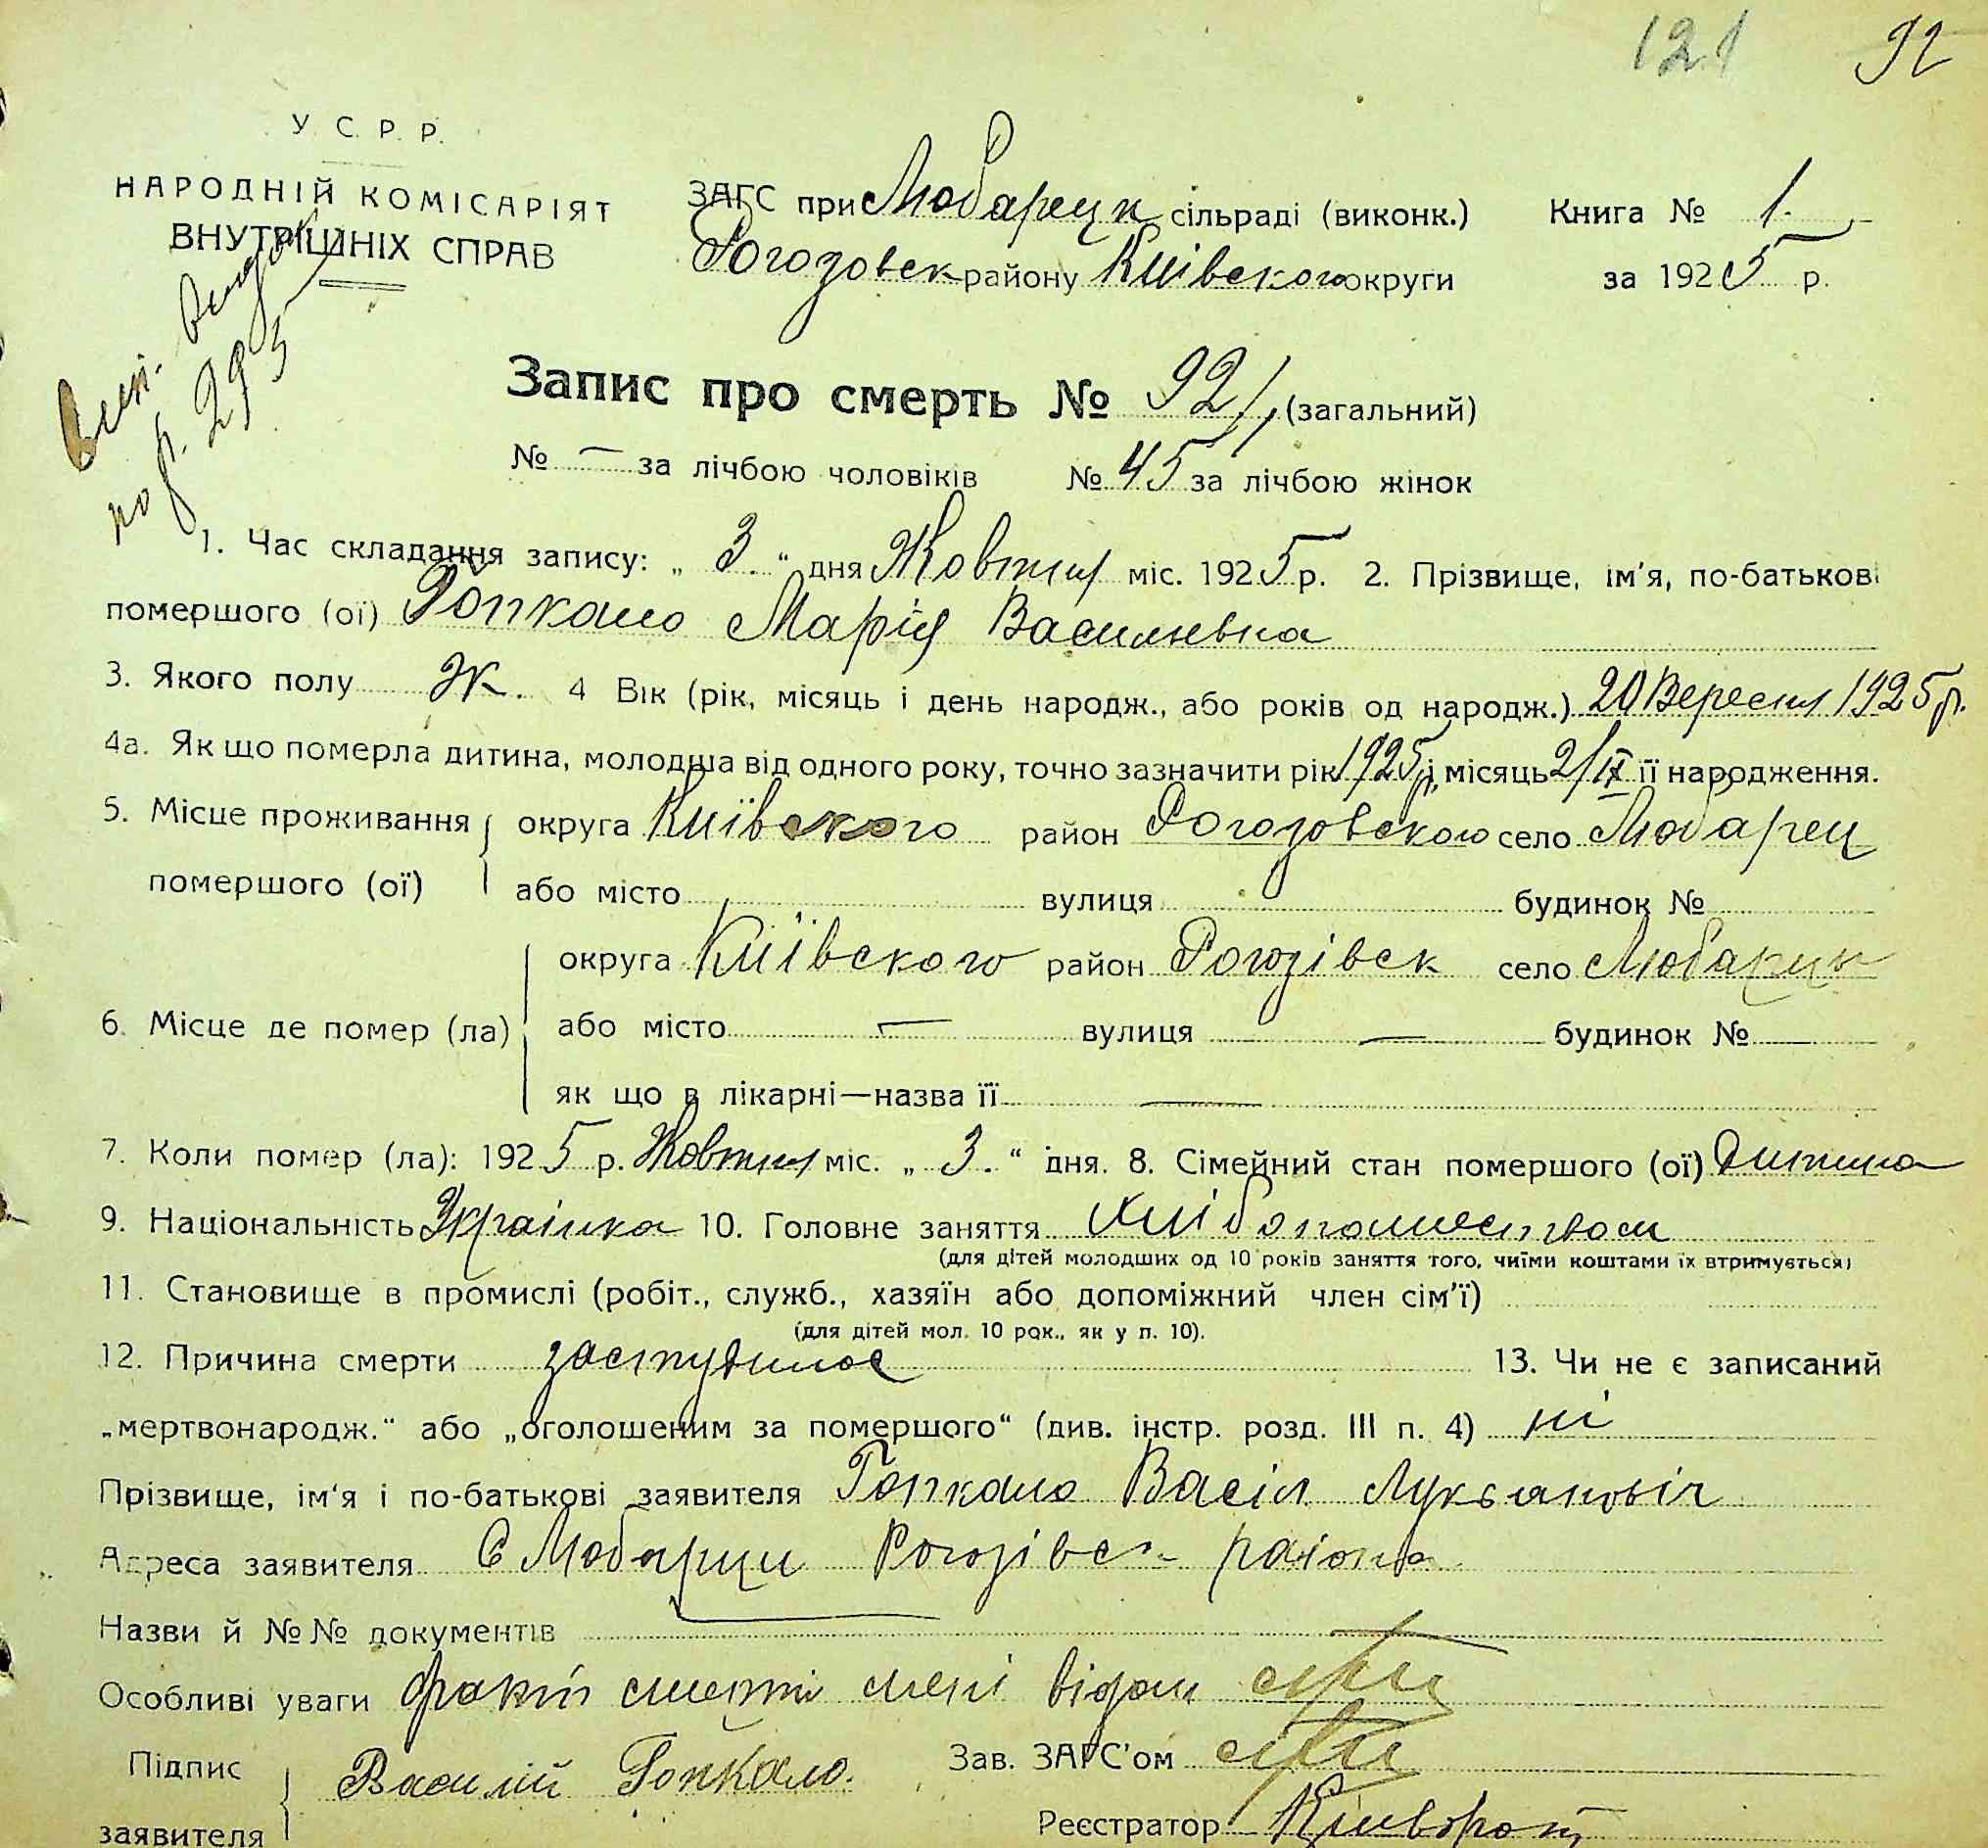 121 92
У. С. Р. Р.
НАРОДНІЙ КОМІСАРІЯТ
ВНУТРІШНІХ СПРАВ
ЗАГС при Любарецк сільраді (виконк.) Книга № 1.
Рогозовск району Київского округи за 1925 р.
Запис про смерть № 92 (загальний)
№ — за лічбою чоловіків № 45 за лічбою жінок
по р. 295
1. Час складання запису: „ 3. “ дня Жовтня міс. 1925 р. 2. Прізвище, ім'я, по-батькові
помершого (ої) Гопкало Марія Василевна
3. Якого полу Ж. 4 Вік (рік, місяць і день народж., або років од народж.) 20 Вересня 1925 р.
4а. Як що померла дитина, молодша від одного року, точно зазначити рік 1925 р. і місяць 2/IX її народження.
5. Місце проживання помершого (ої) округа Київского район Рогозовского село Любарец
або місто вулиця будинок №
6. Місце де помер (ла) округа Київского район Рогозівск село Любарци
або місто — вулиця — будинок № —
як що в лікарні—назва її —
7. Коли помер (ла): 1925 р. Жовтня міс. „ 3. “ дня. 8. Сімейний стан помершого (ої) Дитина
9. Національність Українка 10. Головне заняття
(для дітей молодших од 10 років заняття того, чиїми коштами їх втримується)
11. Становище в промислі (робіт., служб., хазяїн або допоміжний член сім'ї)
(для дітей мол. 10 рок., як у п. 10).
12. Причина смерти застудилос 13. Чи не є записаний
„мертвонародж.“ або „оголошеним за помершого“ (див. інстр. розд. III п. 4) ні
Прізвище, ім'я і по-батькові заявителя Гопкало Васіл Лукьяновіч
Адреса заявителя С Любарци Рогозівск района
Назви й №№ документів
Особливі уваги факт смерти мені відом
Підпис заявителя Василій Гопкало. Зав. ЗАГС'ом
Реєстратор